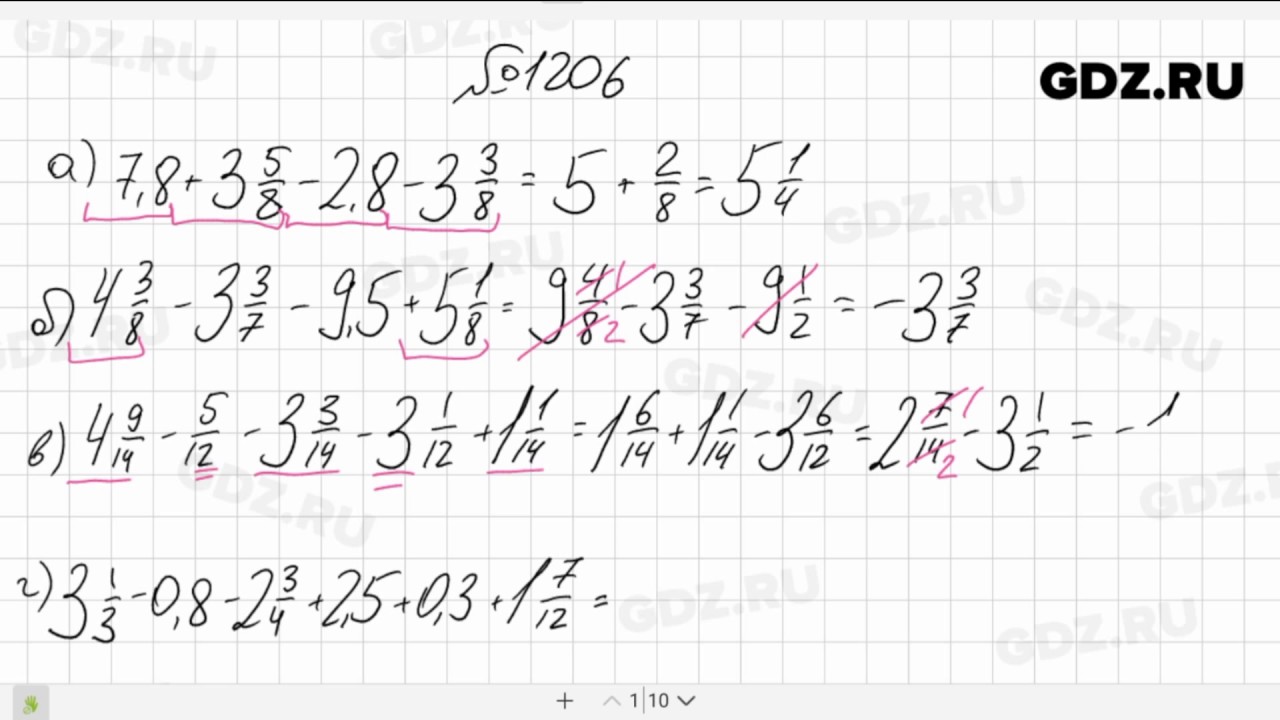 №1206
GDZ.RU
а) 7,8 + 3 5/8 - 2,8 - 3 3/8 = 5 + 2/8 = 5 1/4
б) 4 3/8 - 3 3/7 - 9,5 + 5 1/8 = 9 4/8 1/2 - 3 3/7 - 9 1/2 = -3 3/7
в) 4 9/14 - 5/12 - 3 3/14 - 3 1/12 + 1 1/14 = 1 6/14 + 1 1/14 - 3 6/12 = 2 7/14 1/2 - 3 1/2 = -1
г) 3 1/3 - 0,8 - 2 3/4 + 2,5 + 0,3 + 1 7/12 =
1 10